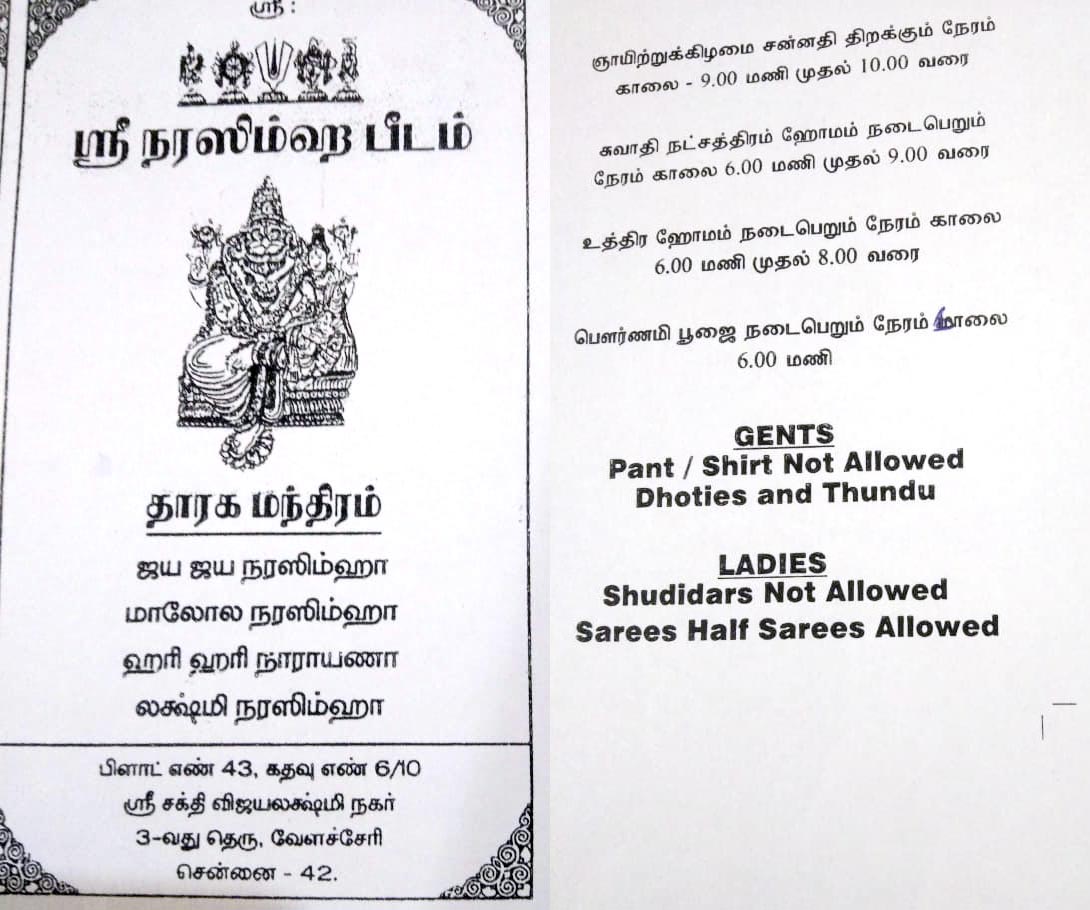 ஸ்ரீ :
ஸ்ரீ நரஸிம்ஹ பீடம்
தாரக மந்திரம்
ஜய ஜய நரஸிம்ஹா
மாலோல நரஸிம்ஹா
ஹரி ஹரி நாராயணா
லக்ஷ்மி நரஸிம்ஹா
பிளாட் எண் 43, கதவு எண் 6/10
ஸ்ரீ சக்தி விஜயலக்ஷ்மி நகர்
3-வது தெரு, வேளச்சேரி
சென்னை - 42.
ஞாயிற்றுக்கிழமை சன்னதி திறக்கும் நேரம்
காலை - 9.00 மணி முதல் 10.00 வரை
சுவாதி நட்சத்திரம் ஹோமம் நடைபெறும்
நேரம் காலை 6.00 மணி முதல் 9.00 வரை
உத்திர ஹோமம் நடைபெறும் நேரம் காலை
6.00 மணி முதல் 8.00 வரை
பௌர்ணமி பூஜை நடைபெறும் நேரம் மாலை
6.00 மணி
GENTS
Pant / Shirt Not Allowed
Dhoties and Thundu
LADIES
Shudidars Not Allowed
Sarees Half Sarees Allowed